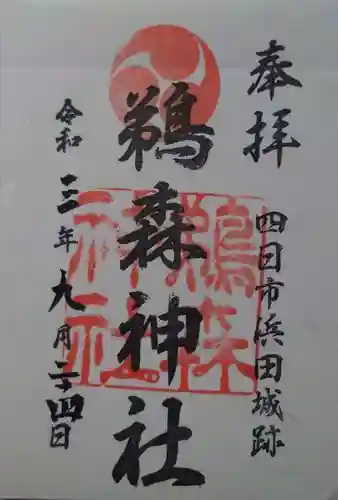 奉拝
四日市浜田城跡
鵜森神社
鵜森神社
令和三年九月二十四日